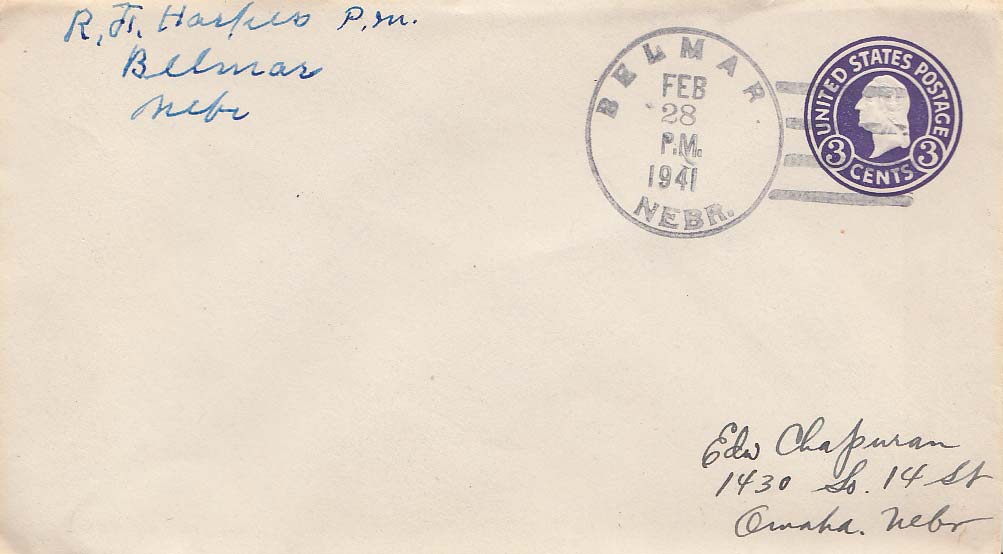 R. F. Harpers P.M.
Belmar
Nebr
BELMAR
FEB
28
P.M.
1941
NEBR.
UNITED STATES POSTAGE
3 CENTS 3
Edw Chapuran
1430 So. 14 St
Omaha. Nebr